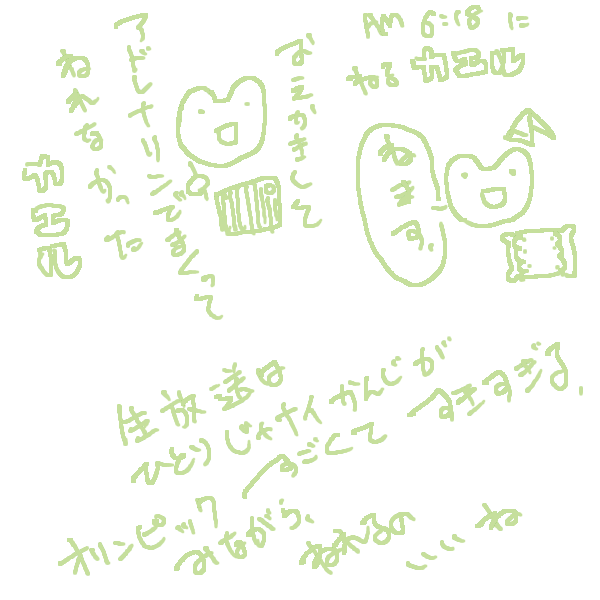 おえかきして
アドレナリンでまくって
ねれなかった
カエル
AM 6:18 に
ねる カエル
ねます。
生放送は
ひとりじゃナイかんじが
すごくて すきすぎる、
オリンピック
みながら、ねれるの
いいね